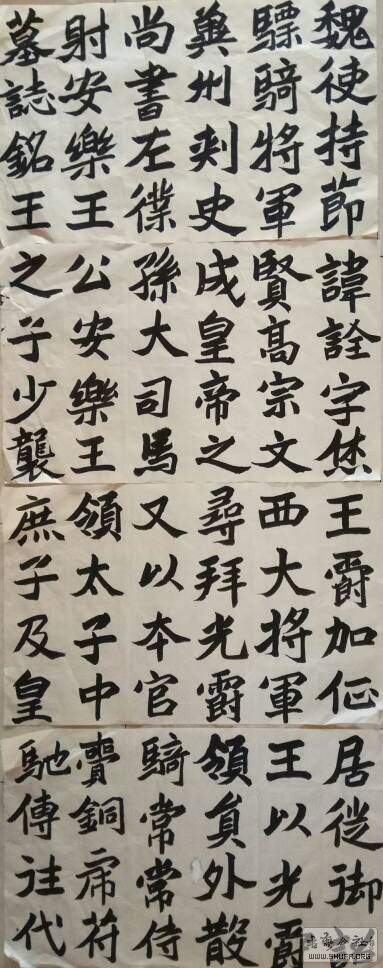 魏使持節
驃騎將軍
冀州刺史
尚書左僕
射安樂王
墓誌銘王
諱詮字休
賢高宗文
成皇帝之
孫大司馬
公安樂王
之子少襲
王爵加征
西大將軍
尋拜光爵
又以本官
領太子中
庶子及皇
居徙御
王以光爵
領員外散
騎常常侍
賷銅虎符
馳傳往代
WWW.SHUFA.ORG